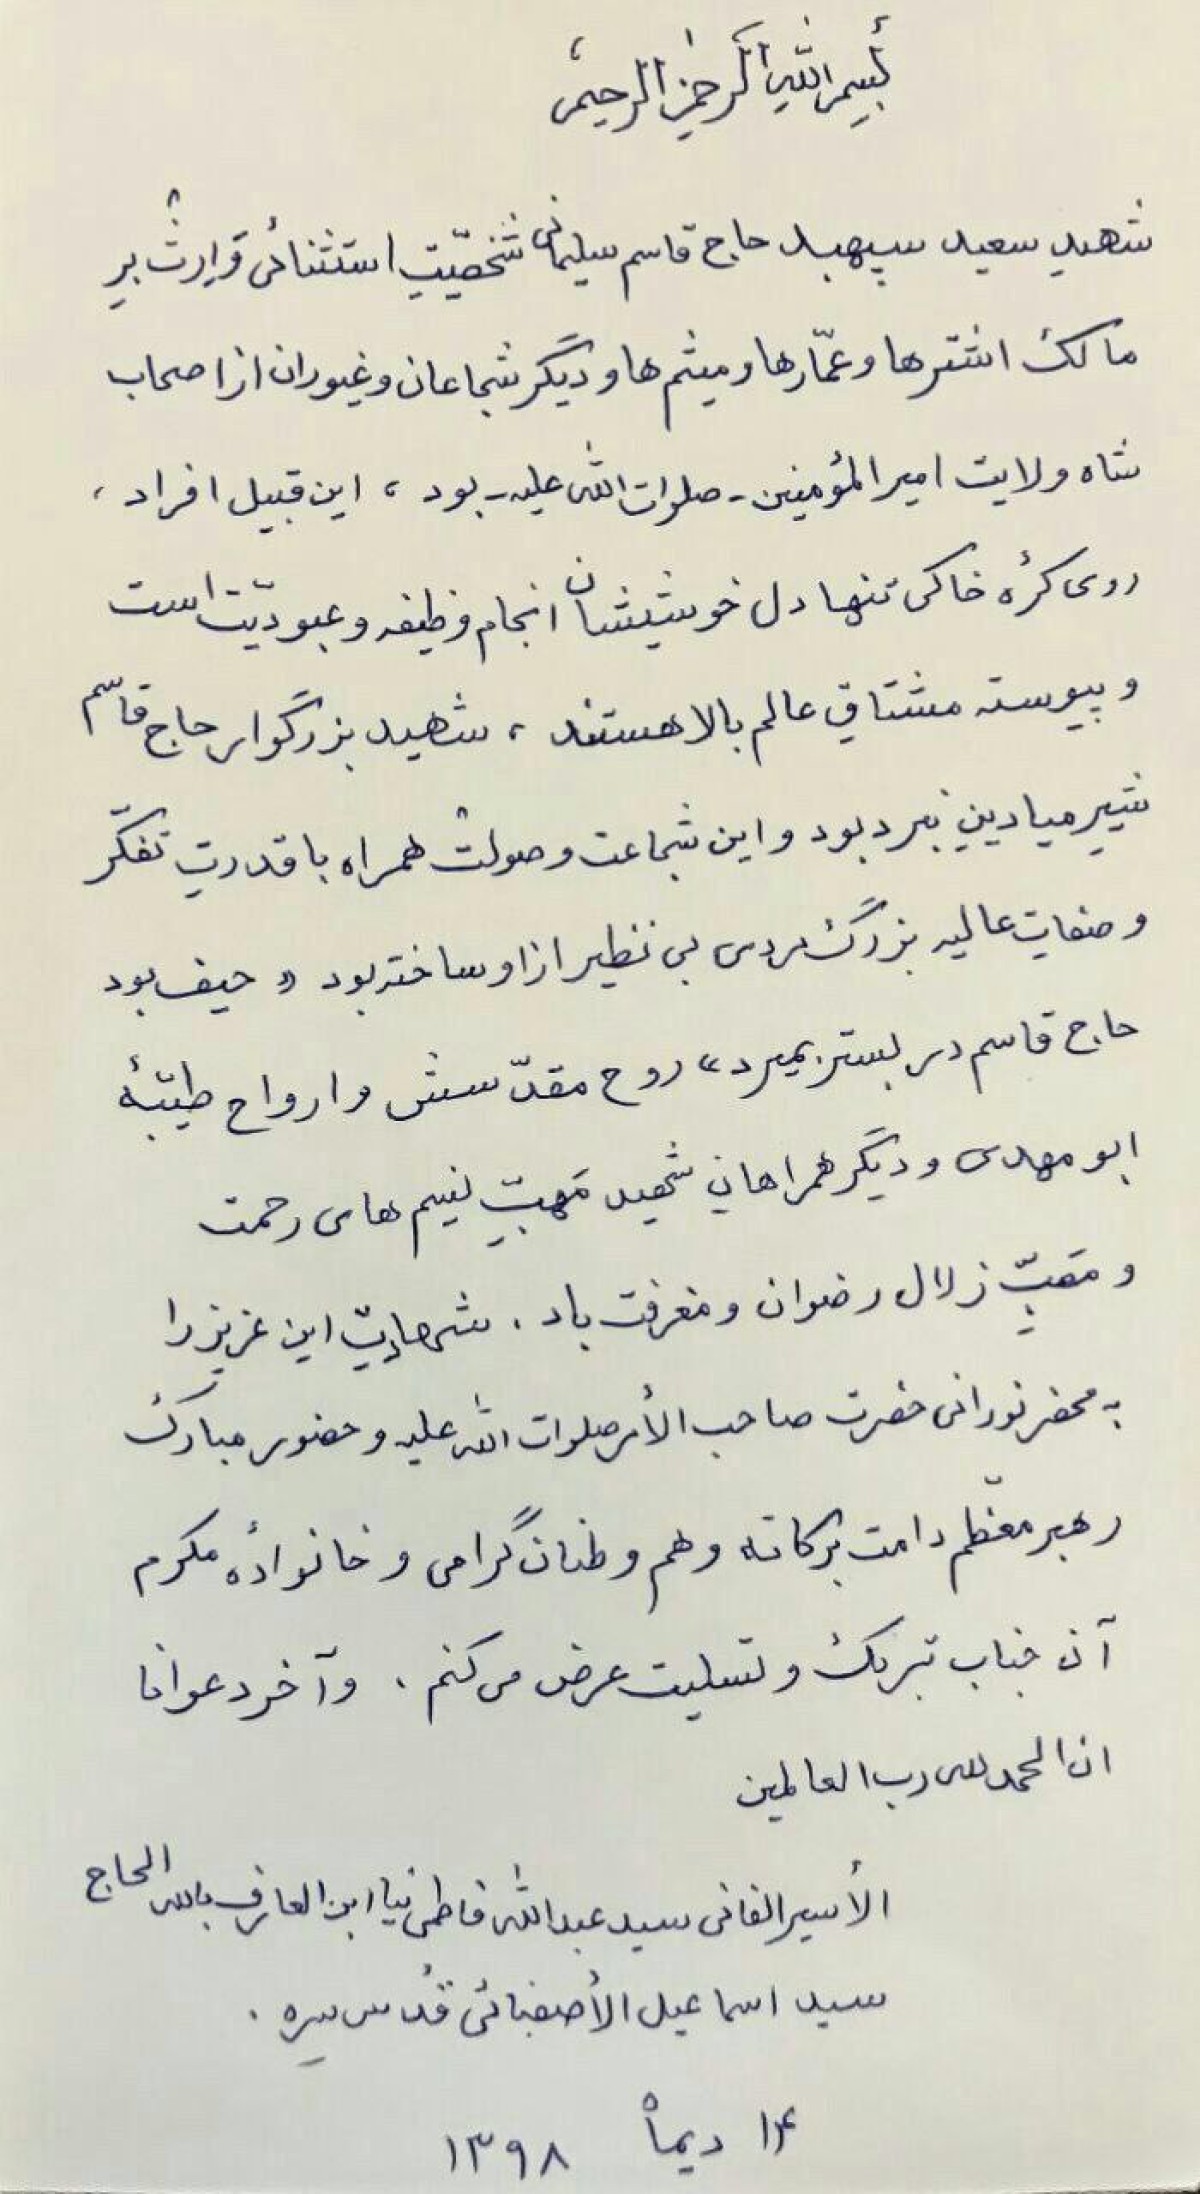 بِسمِ اللهِ الرحمنِ الرحیم
شهیدِ سعید سپهبد حاج قاسم سلیمانی شخصّیتِ استثنائی و وارثِ بر
مالک اشترها و عمّارها و میثم ها و دیگر شجاعان و غیوران از اصحاب
شاه ولایت امیرالمؤمنین - صلوات الله علیه - بود ، این قبیل افراد ،
روی کرهٔ خاکی تنها دل خوشیشان انجام وظیفه و عبودیّت است
و پیوسته مشتاقِ عالم بالا هستند ، شهید بزرگوار حاج قاسم
شیر میادینِ نبرد بود و این شجاعت و صولت همراه با قدرتِ تفکّر
و صفاتِ عالیه بزرگ مردی بی نظیر از او ساخته بود « حیف بود
حاج قاسم در بستر بمیرد » روح مقدّسش و ارواح طیّبهٔ
ابو مهدی و دیگر همراهانِ شهید مَهَبِّ نسیم های رحمت
و مَصَبِّ زلال رضوان و مغفرت باد . شهادتِ این عزیز را
به محضر نورانی حضرت صاحب الأمر صلوات الله علیه و حضور مبارک
رهبر معظّم دامت برکاته و هم وطنان گرامی و خانوادهٔ مکرم
آن جناب تبریک و تسلیت عرض می کنم . و آخر دعوانا
ان الحمد لله رب العالمین
الأسیر الفانی سید عبدالله فاطمی نیا ابن العارف بالله الحاج
سید اسماعیل الأصفیائی قُدّس سِره .
۱۴ دیماه ۱۳۹۸